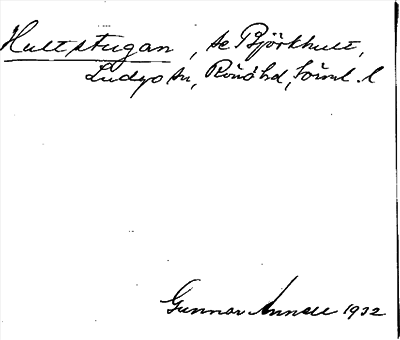 Hultstugan, se Björkhult,
Ludgo sn, Rönö hd, Södml. l
Gunnar Annell 1932